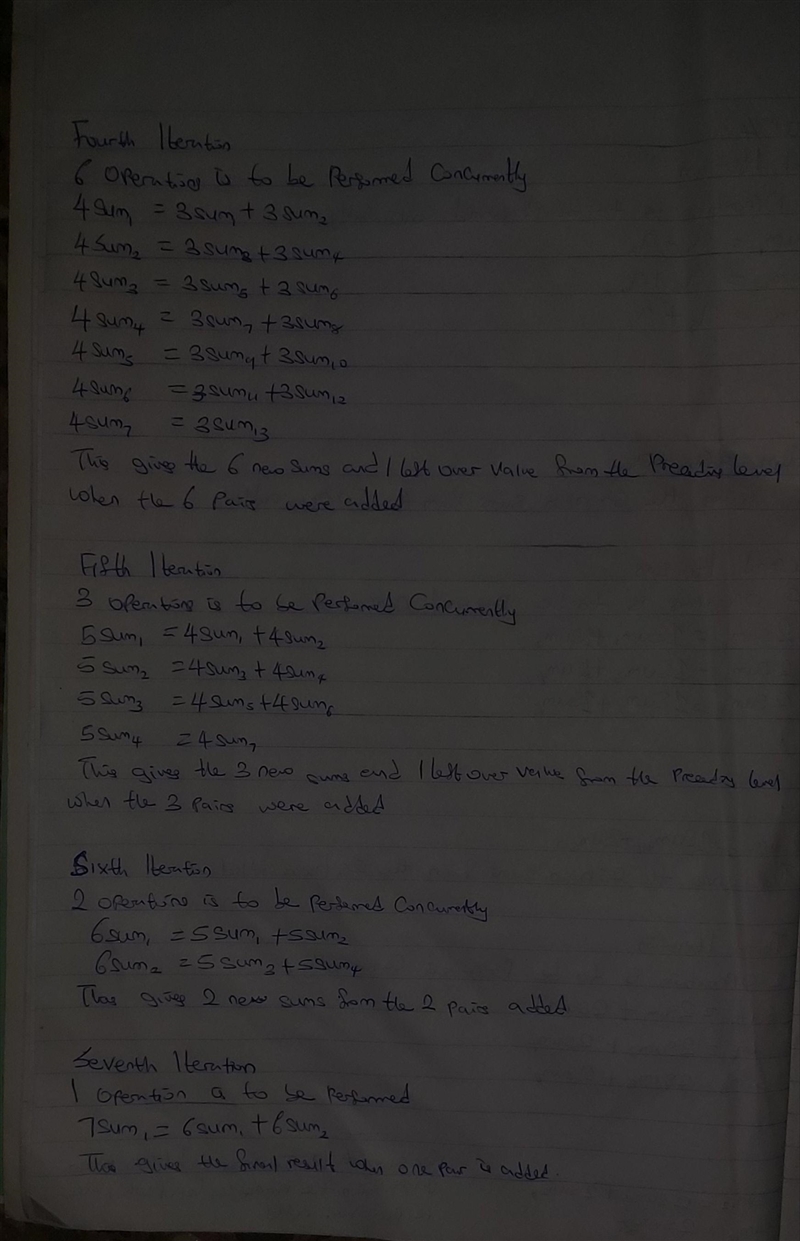 Fourth Iteration
6 Operations is to be Performed Concurrently
4sum₁ = 3sum₁ + 3sum₂
4sum₂ = 3sum₃ + 3sum₄
4sum₃ = 3sum₅ + 3sum₆
4sum₄ = 3sum₇ + 3sum₈
4sum₅ = 3sum₉ + 3sum₁₀
4sum₆ = 3sum₁₁ + 3sum₁₂
4sum₇ = 3sum₁₃
This gives the 6 new sums and 1 left over value from the Preceding level
when the 6 Pairs were added
Fifth Iteration
3 operations is to be Performed Concurrently
5sum₁ = 4sum₁ + 4sum₂
5sum₂ = 4sum₃ + 4sum₄
5sum₃ = 4sum₅ + 4sum₆
5sum₄ = 4sum₇
This gives the 3 new sums and 1 left over value from the Preceding level
when the 3 Pairs were added
Sixth Iteration
2 operations is to be Performed Concurrently
6sum₁ = 5sum₁ + 5sum₂
6sum₂ = 5sum₃ + 5sum₄
This gives 2 new sums from the 2 pairs added
Seventh Iteration
1 Operation is to be Performed
7sum₁ = 6sum₁ + 6sum₂
This gives the final result when one Pair is added.